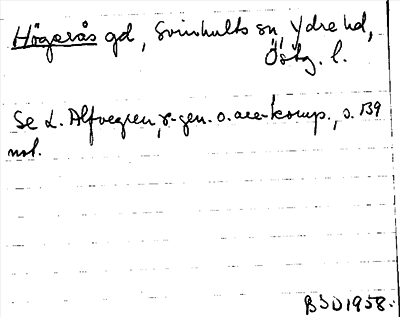 Högerås gd, Svinhults sn, Ydre hd,
Östg. l.
Se L. Alfvegren, r-gen. o. ære-komp., s. 139
not.
BSD1958.